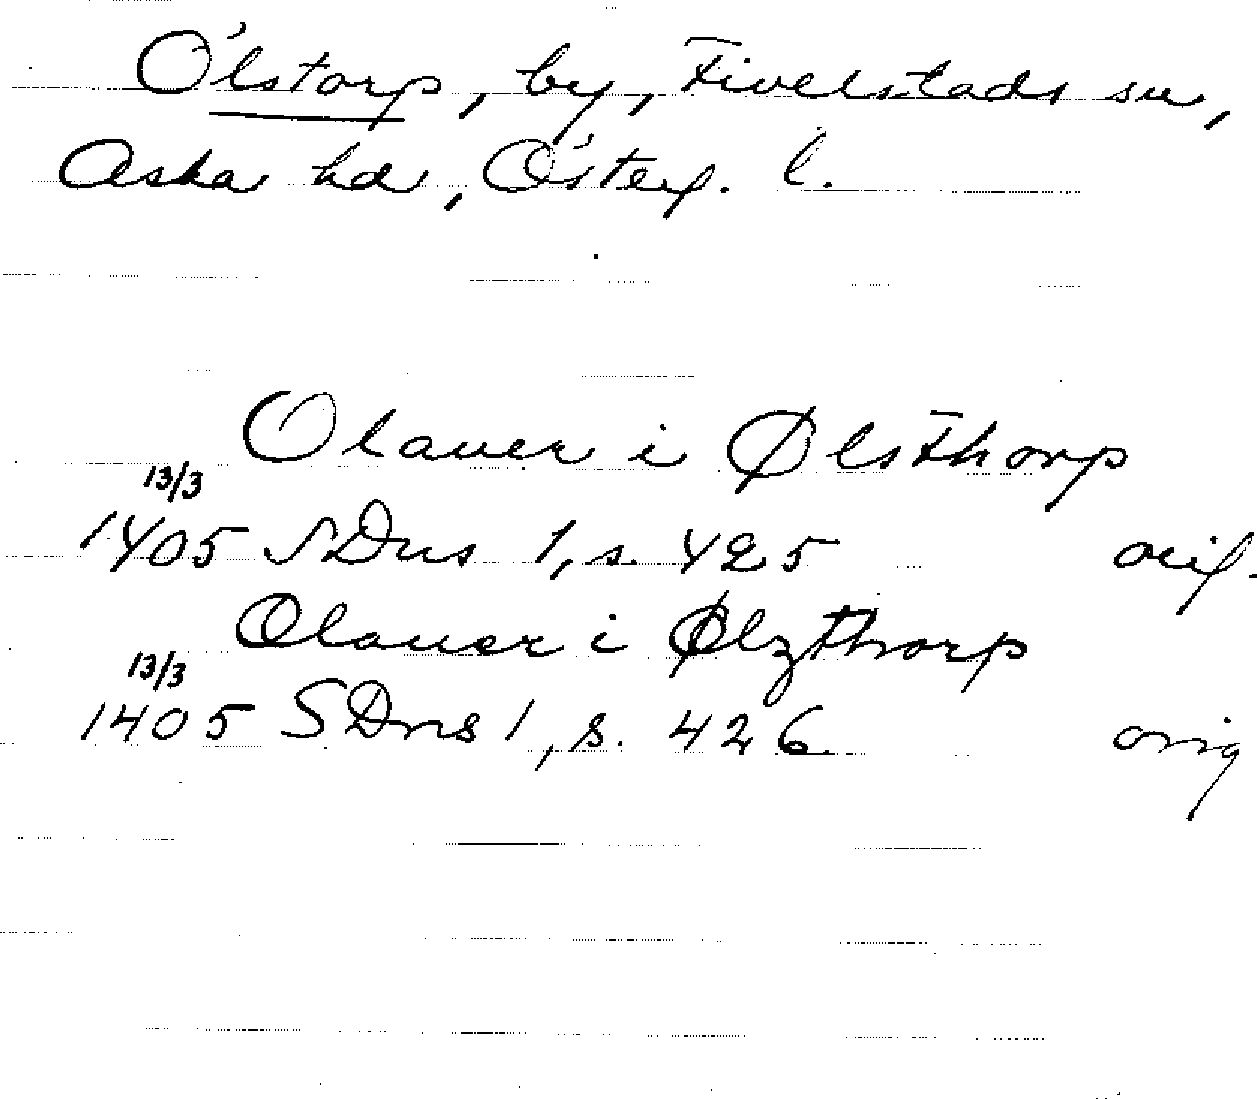 Ölstorp, by, Fivelstads sn,
Aska hd, Österg. l.
Olauer i Ølsthorp
13/3
1405 SDns 1, s. 425 orig.
Olauer i Ølzthorp
13/3
1405 SDns 1, s. 426 orig